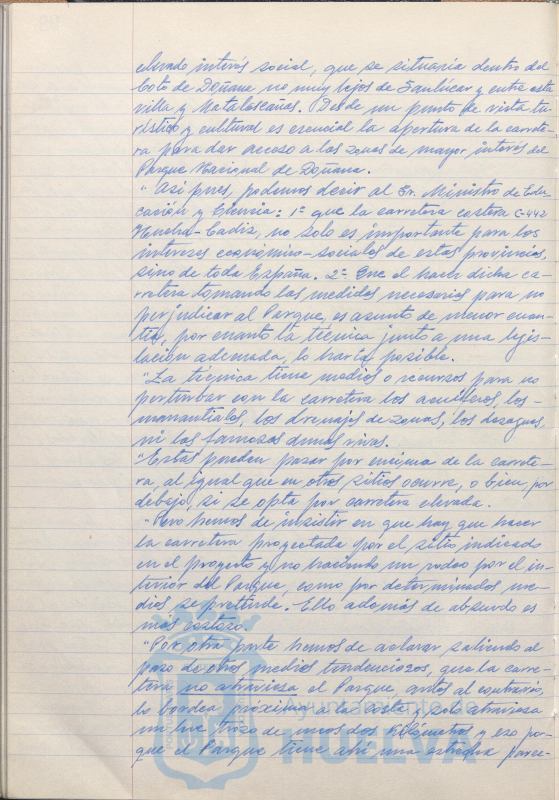 elevado interés social, que se situaría dentro del
Coto de Doñana no muy lejos de Sanlúcar y entre esta
villa y Matalascañas. Desde un punto de vista tu-
rístico y cultural es esencial la apertura de la carrete-
ra para dar acceso a las zonas de mayor interés del
Parque Nacional de Doñana.
"Así pues, podemos decir al Sr. Ministro de Edu-
cación y Ciencia: 1º que la carretera costera C-442
Huelva-Cadiz, no solo es importante para los
intereses económico-sociales de estas provincias,
sino de toda España. 2º Que el hacer dicha ca-
rretera tomando las medidas necesarias para no
perjudicar al Parque, es asunto de menor cuan-
tía, por cuanto la técnica junto a una legis-
lación adecuada, lo haría posible.
"La técnica tiene medios o recursos para no
perturbar con la carretera los acuíferos, los
manantiales, los drenajes de zonas, los desagues
ni las famosas dunas vivas.
"Estas pueden pasar por encima de la carrete-
ra, al igual que en otros sitios ocurre, o bien por
debajo, si se opta por carretera elevada.
"Pero hemos de insistir en que hay que hacer
la carretera proyectada por el sitio indicado
en el proyecto y no haciendo un rodeo por el in-
terior del Parque, como por determinados me-
dios se pretende. Ello además de absurdo es
más costoso.
"Por otra parte hemos de aclarar saliendo al
paso de otros medios tendenciosos, que la carre-
tera no atraviesa el Parque, antes al contrario,
lo bordea próxima a la costa y solo atraviesa
un breve trozo de unos dos Kilómetros y eso por-
que el Parque tiene ahí una estrecha parce-
Ayuntamiento de
HUELVA